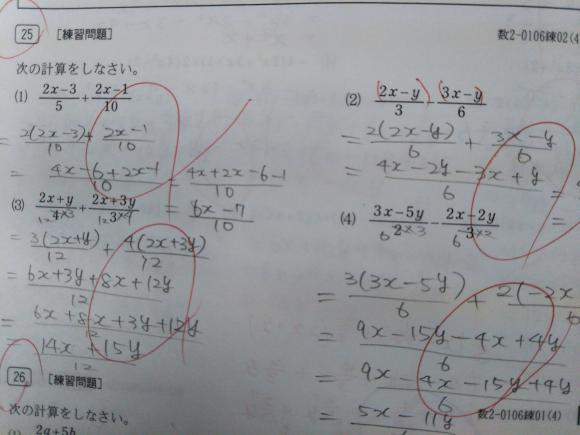 25 [練習問題] 数2-0106練02(4
次の計算をしなさい。
(1) (2x-3)/5 + (2x-1)/10
= 2(2x-3)/10 + (2x-1)/10
= (4x-6+2x-1)/10 = (4x+2x-6-1)/10
= (6x-7)/10
(2) (2x-y)/3 - (3x-y)/6
= 2(2x-y)/6 + (3x-y)/6
= (4x-2y-3x+y)/6 =
=
(3) (2x+y)/4 + (2x+3y)/3
12 ×3 12 ×4
= 3(2x+y)/12 + 4(2x+3y)/12
= (6x+3y+8x+12y)/12
= (6x+8x+3y+12y)/12
= (14x+15y)/12
(4) (3x-5y)/2 - (2x-2y)/3
6 ×3 6 ×2
= 3(3x-5y)/6 + 2(-2x
= (9x-15y-4x+4y)/6
= (9x-4x-15y+4y)/6
= 5x-11y
26 [練習問題] 数2-0106練01(4)
次の計算をしなさい。
2a+5b